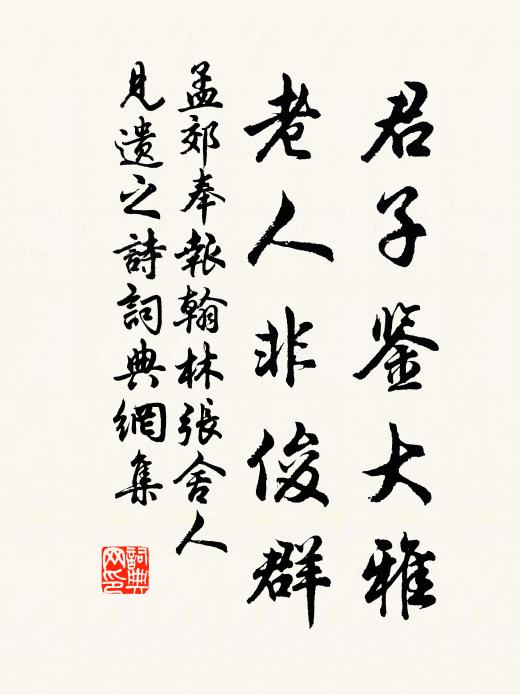 君子鉴大雅
老人非俊群
孟郊奉報翰林張舍人
見遺之詩詞典網集
詞典網印